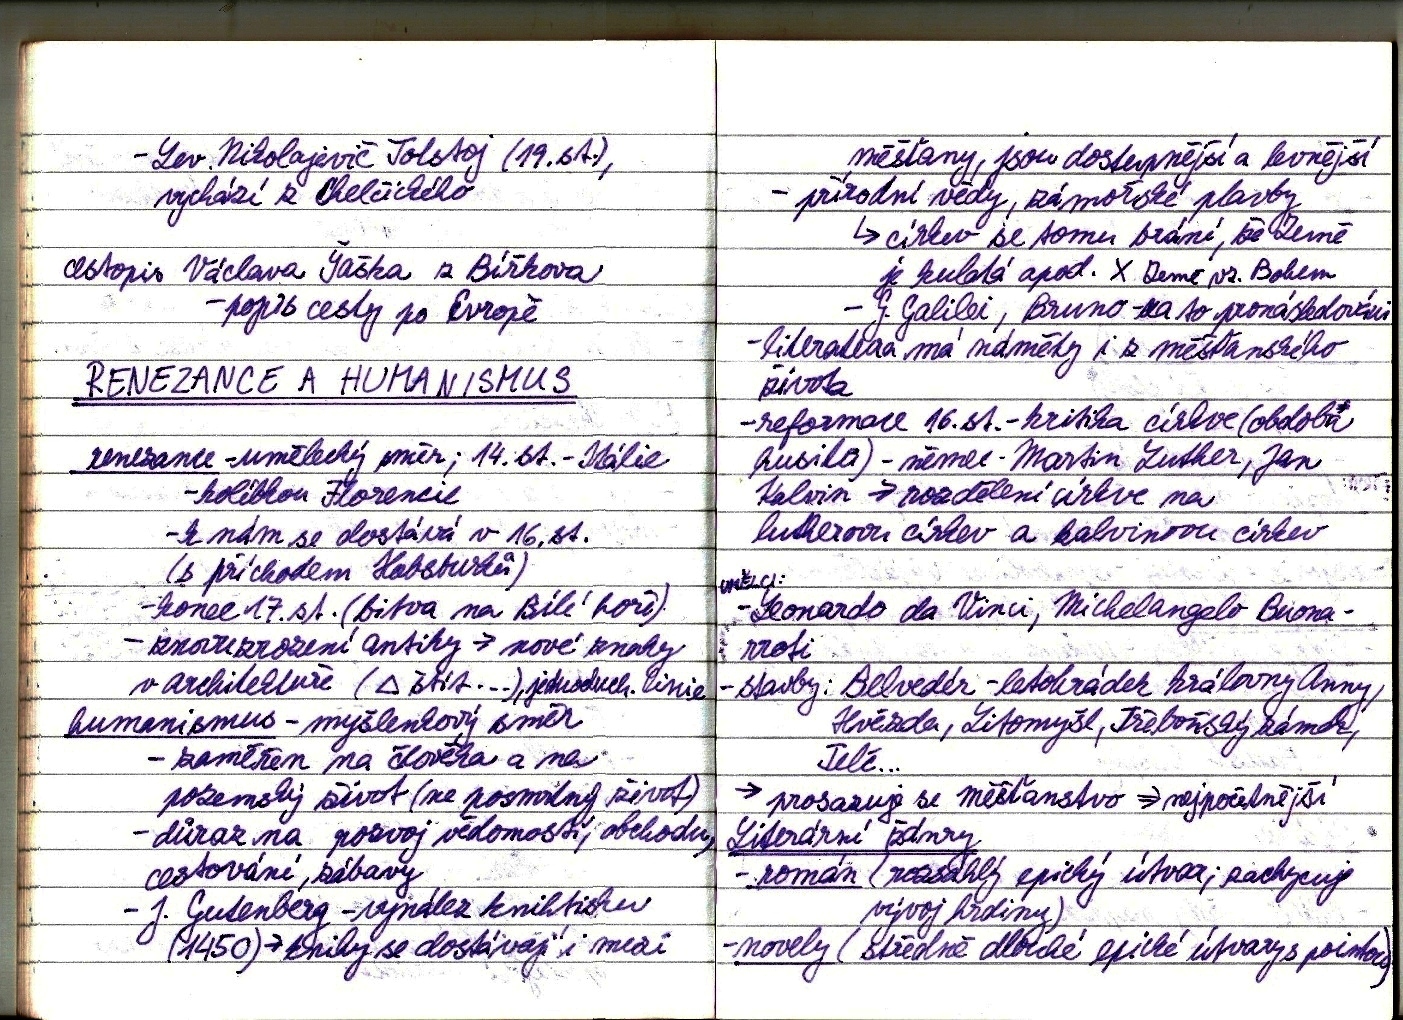 - Lev Nikolajevič Tolstoj (19.st.),
vychází z Chelčického
cestopis Václava Šaška z Bířkova
- popis cesty po Evropě
RENEZANCE A HUMANISMUS
renezance - umělecký směr; 14.st. - Itálie
- kolébkou Florencie
- k nám se dostává v 16.st.
(s příchodem Habsburků)
- konec 17.st. (bitva na Bílé hoře)
- znovuzrození antiky → nové znaky
v architektuře (△ štít...), jednoduch. linie
humanismus - myšlenkový směr
- zaměřen na člověka a na
pozemský život (ne posmrtný život)
- důraz na rozvoj vědomostí, obchodu,
cestování, zábavy
- J. Gutenberg - vynález knihtisku
(1450) → knihy se dostávají i mezi
měšťany, jsou dostupnější a levnější
- přírodní vědy, zámořské plavby
↳ církev se tomu brání, že Země
je kulatá apod. X Země vz. Bohem
- G. Galilei, Bruno - za to pronásledováni
- literatura má náměty i z měšťanského
života
- reformace 16.st. - kritika církve (období
husitů) - němec - Martin Luther, Jan
Kalvin → rozdělení církve na
lutherovu církev a kalvinovu církev
UMĚLCI:
- Leonardo da Vinci, Michelangelo Buona-
rroti
- stavby: Belvedér - letohrádek královny Anny,
Hvězda, Litomyšl, Třeboňský zámek,
Telč...
→ prosazuje se měšťanstvo ⇒ nejpočetnější
Literární žánry
- román (rozsáhlý epický útvar; zachycuje
vývoj hrdiny)
- novely (středně dlouhé epické útvary s pointou)